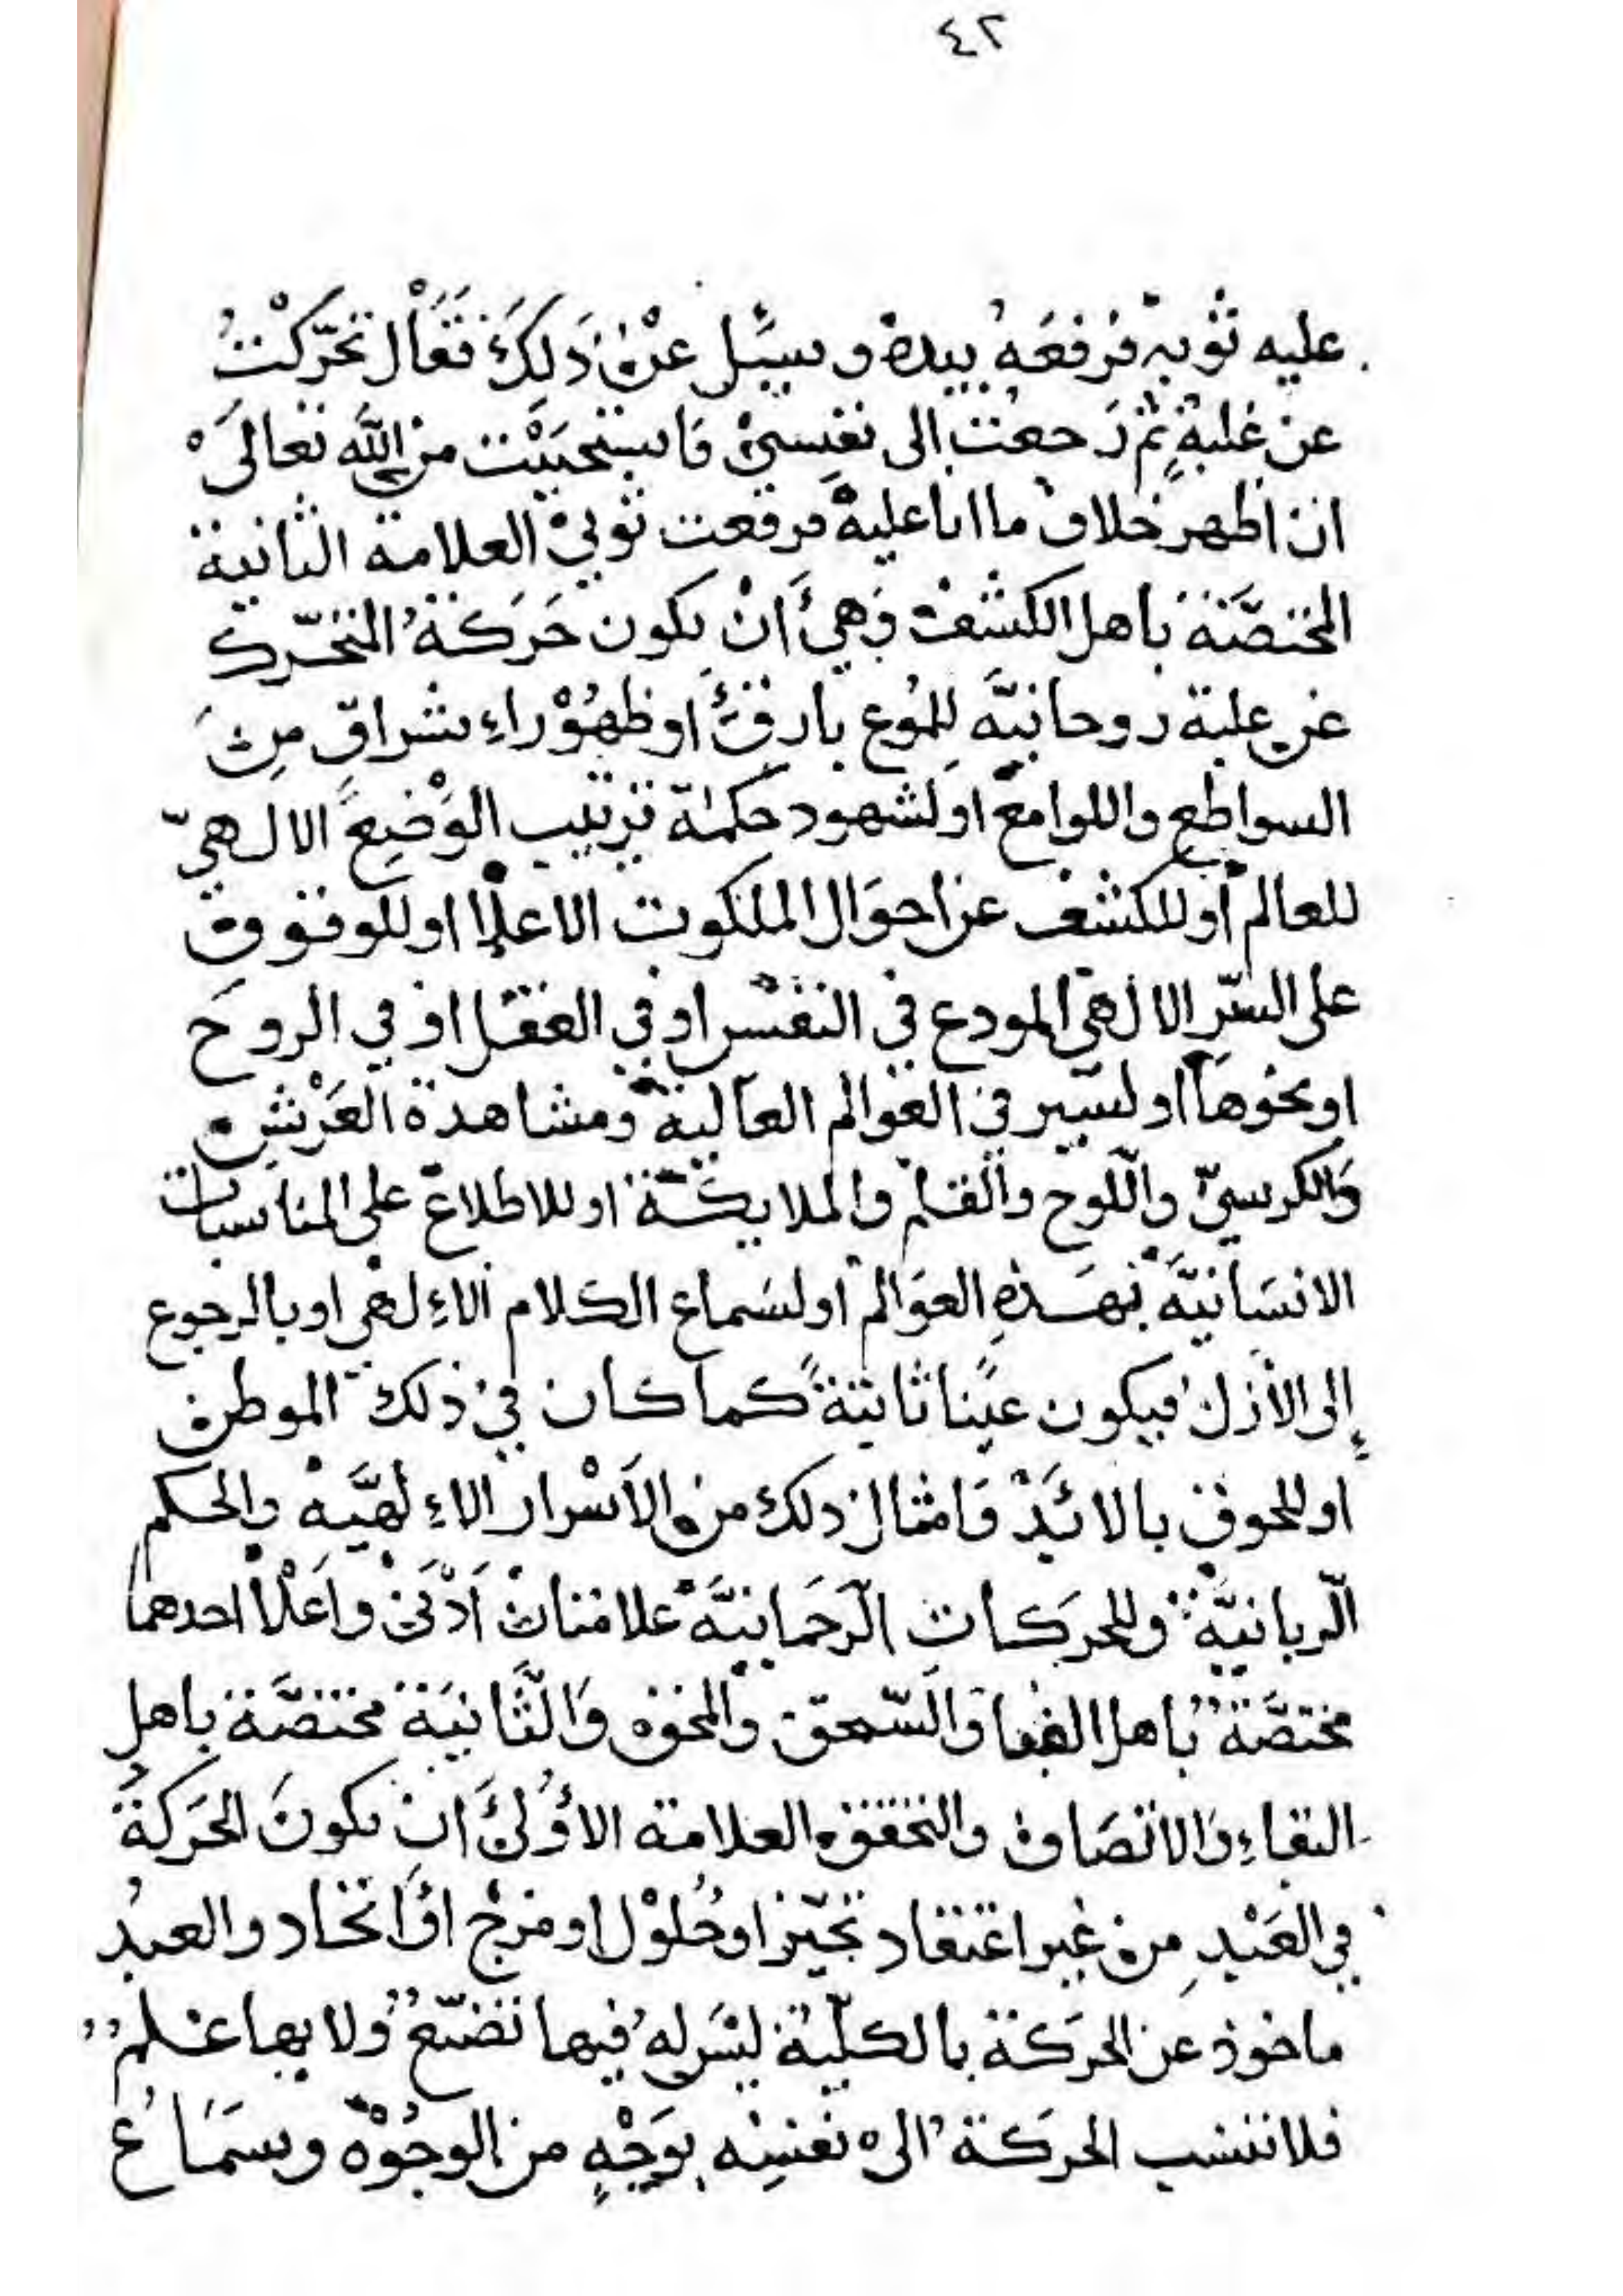 ٤٢
عليه ثوبه فرفعه بيده وسيل عن ذلك فقال تحركت
عن غلبة ثم رجعت الى نفسي فاستحييت من الله تعالى
ان اظهر خلاف ما انا عليه فرفعت ثوبي العلامة الثانية
المختصة باهل الكشف وهي ان يكون حركة المتحرك
عن غلبة روحانية للموع بارقة او ظهور اشراق من
السواطع واللوامع او لشهود حكمة ترتيب الوضع الالهي
للعالم او للكشف عن احوال الملكوت الاعلا او للوقوف
على السر الالهي المودع في النفس او في العقل او في الروح
او نحوها او لسير في العوالم العالية ومشاهدة العرش
والكرسي واللوح والقلم والملايكة او للاطلاع على المناسبات
الانسانية بهذه العوالم او لسماع الكلام الالهي او بالرجوع
إلى الأزل فيكون عينا ثابتة كما كان في ذلك الموطن
او للحوق بالابد وامثال ذلك من الأسرار الالهية والحكم
الربانية وللحركات الرحمانية علامتان أدنى واعلا احدهما
مختصة باهل الفنا والسحق والمحق والثانية مختصة باهل
البقاء والاتصاف والتحقق العلامة الأولى ان يكون الحركة
في العبد من غير اعتقاد تحيز او حلول او مزج او اتحاد والعبد
ماخوذ عن الحركة بالكلية ليس له فيها تصنع ولا بها علم
فلا تنسب الحركة الى نفسه بوجه من الوجوه وسماع